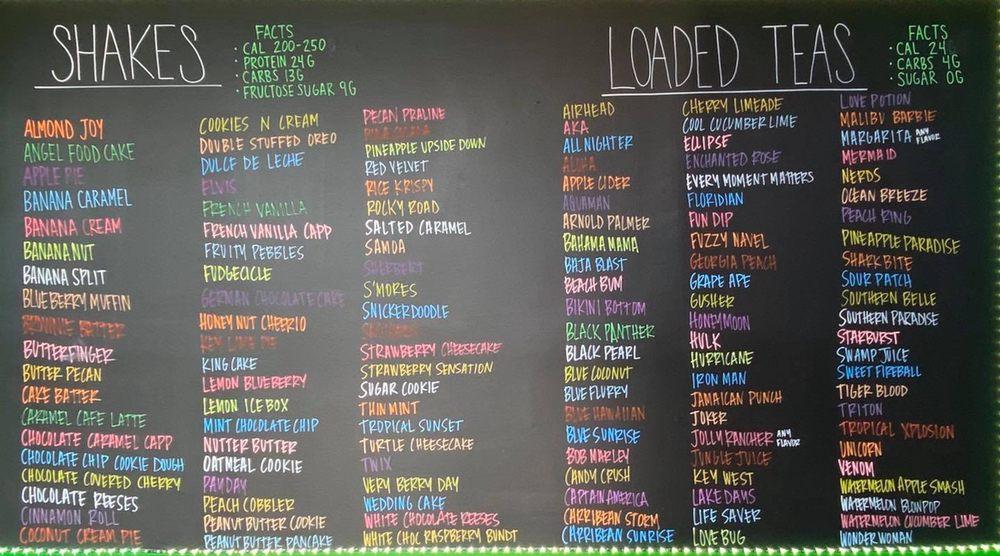 SHAKES
FACTS
· CAL 200-250
· PROTEIN 24G
· CARBS 13G
· FRUCTOSE SUGAR 9G
ALMOND JOY
ANGEL FOOD CAKE
APPLE PIE
BANANA CARAMEL
BANANA CREAM
BANANA NUT
BANANA SPLIT
BLUEBERRY MUFFIN
BROWNIE BATTER
BUTTERFINGER
BUTTER PECAN
CAKE BATTER
CARAMEL CAFE LATTE
CHOCOLATE CARAMEL CAPP
CHOCOLATE CHIP COOKIE DOUGH
CHOCOLATE COVERED CHERRY
CHOCOLATE REESES
CINNAMON ROLL
COCONUT CREAM PIE
COOKIES N CREAM
DOUBLE STUFFED OREO
DULCE DE LECHE
ELVIS
FRENCH VANILLA
FRENCH VANILLA CAPP
FRUITY PEBBLES
FUDGECICLE
GERMAN CHOCOLATE CAKE
HONEY NUT CHEERIO
KEY LIME PIE
KING CAKE
LEMON BLUEBERRY
LEMON ICE BOX
MINT CHOCOLATE CHIP
NUTTER BUTTER
OATMEAL COOKIE
PAYDAY
PEACH COBBLER
PEANUT BUTTER COOKIE
PEANUT BUTTER PANCAKE
PECAN PRALINE
PINA COLADA
PINEAPPLE UPSIDE DOWN
RED VELVET
RICE KRISPY
ROCKY ROAD
SALTED CARAMEL
SAMOA
SHERBERT
S'MORES
SNICKERDOODLE
STRAWBERRY CHEESECAKE
STRAWBERRY SENSATION
SUGAR COOKIE
THIN MINT
TROPICAL SUNSET
TURTLE CHEESECAKE
TWIX
VERY BERRY DAY
WEDDING CAKE
WHITE CHOCOLATE REESES
WHITE CHOC RASPBERRY BUNDT
LOADED TEAS
FACTS
· CAL 24
· CARBS 4G
· SUGAR 0G
AIRHEAD
AKA
ALL NIGHTER
ALOHA
APPLE CIDER
AQUAMAN
ARNOLD PALMER
BAHAMA MAMA
BAJA BLAST
BEACH BUM
BIKINI BOTTOM
BLACK PANTHER
BLACK PEARL
BLUE COCONUT
BLUE FLURRY
BLUE HAWAIIAN
BLUE SUNRISE
BOB MARLEY
CANDY CRUSH
CAPTAIN AMERICA
CARRIBEAN STORM
CARRIBEAN SUNRISE
CHERRY LIMEADE
COOL CUCUMBER LIME
ECLIPSE
ENCHANTED ROSE
EVERY MOMENT MATTERS
FLORIDIAN
FUN DIP
FUZZY NAVEL
GEORGIA PEACH
GRAPE APE
GUSHER
HONEYMOON
HULK
HURRICANE
IRON MAN
JAMAICAN PUNCH
JOKER
JOLLY RANCHER ANY FLAVOR
JUNGLE JUICE
KEY WEST
LAKE DAYS
LIFE SAVER
LOVE BUG
LOVE POTION
MALIBU BARBIE
MARGARITA ANY FLAVOR
MERMAID
NERDS
OCEAN BREEZE
PEACH RING
PINEAPPLE PARADISE
SHARK BITE
SOUR PATCH
SOUTHERN BELLE
SOUTHERN PARADISE
STARBURST
SWAMP JUICE
SWEET FIREBALL
TIGER BLOOD
TRITON
TROPICAL XPLOSION
UNICORN
VENOM
WATERMELON APPLE SMASH
WATERMELON BLOWPOP
WATERMELON CUCUMBER LIME
WONDER WOMAN